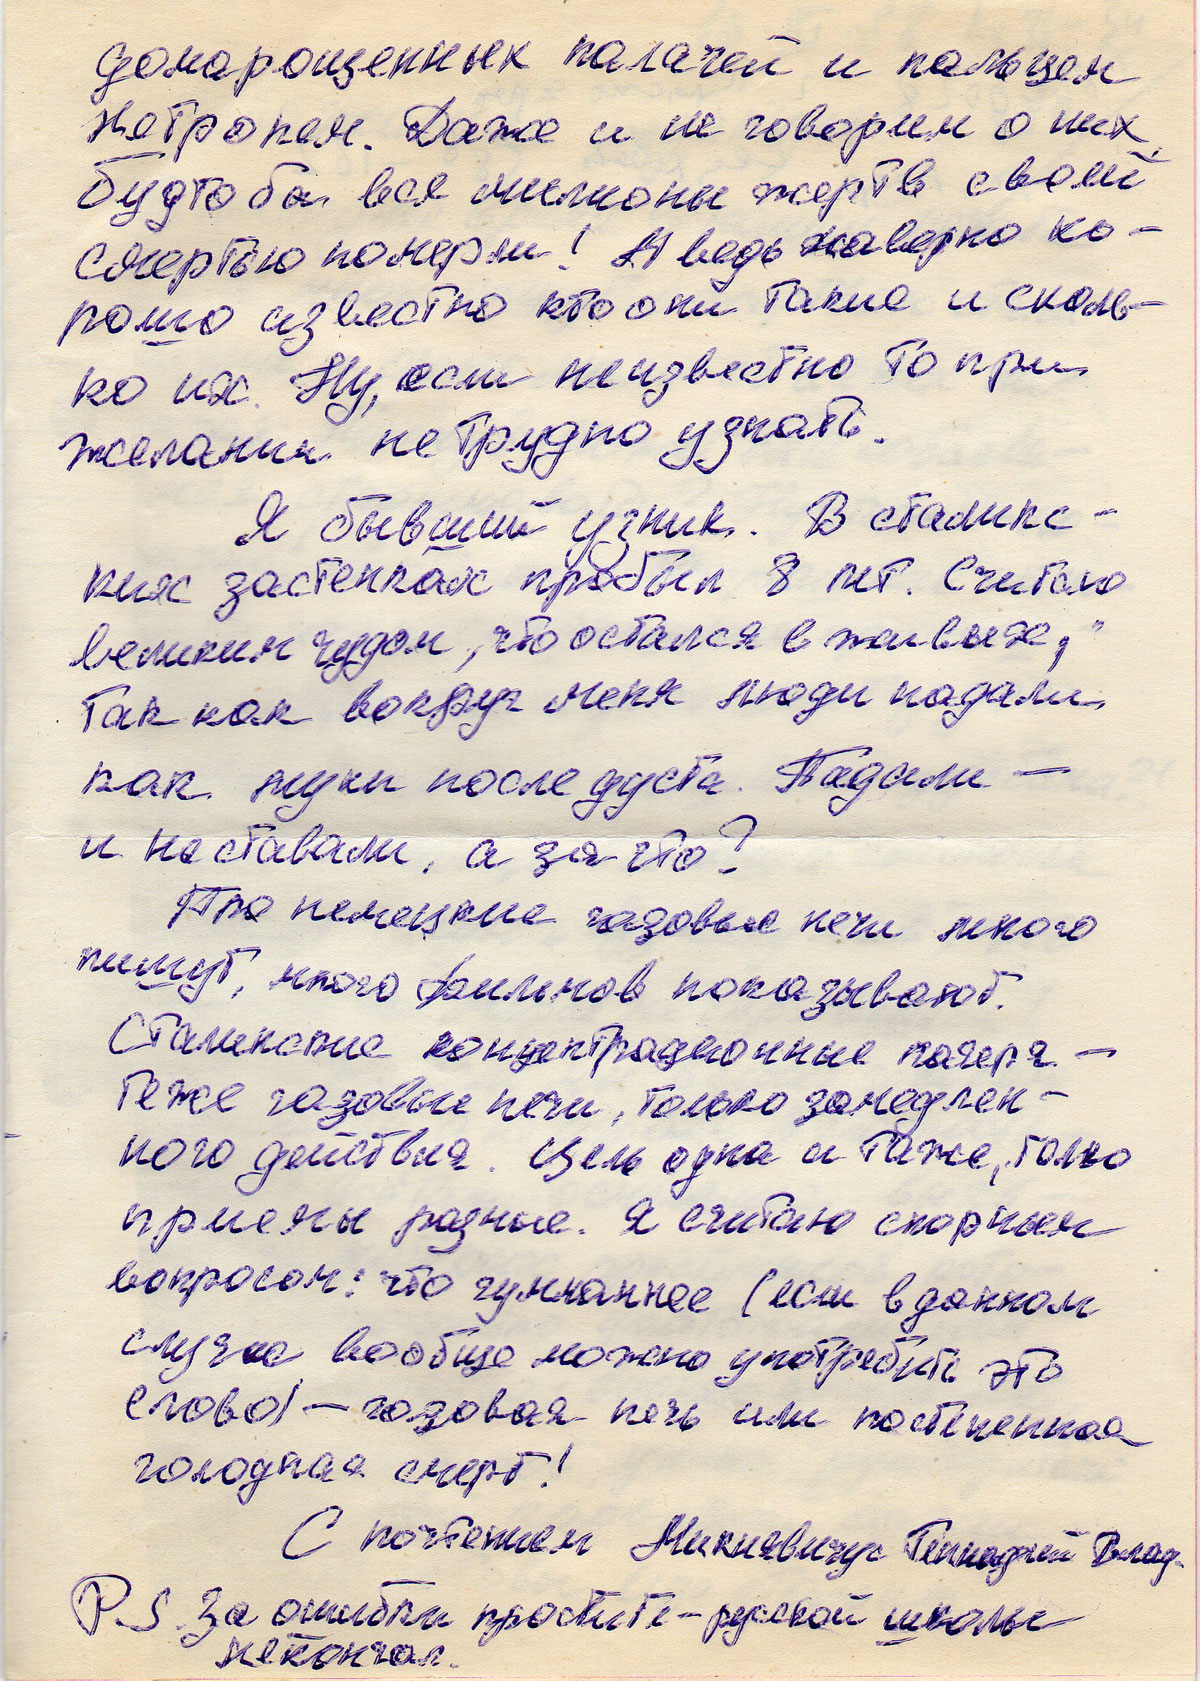 доморощенных палачей и пальцем
не тронем. Даже и не говорим о них,
будто бы вся милионы жертв своей
смертью померли! А ведь наверно хо-
рошо известно кто они такие и сколь-
ко их. Ну, если неизвестно то при
желании не трудно узнать.
Я бывший узник. В сталинс-
ких застенках пробыл 8 лет. Считаю
великим чудом, что остался в живых,
так как вокруг меня люди падали,
как мухи после дуста. Падали —
и не ставали, а за что?
Про немецкие газовые печи много
пишут, много фильмов показывают.
Сталинские концентрационные лагеря —
теже газовые печи, только замедлен-
ного действия. Цель одна и таже, только
приемы разные. Я считаю спорным
вопросом: что гуманнее (если в данном
случае вообще можно употребить это
слово) — газовая печь или постепенная
голодная смерт!
С почтением Мицкявичус Геннадий Влад.
P.S. За ошибки простите – русской школы
не кончал.